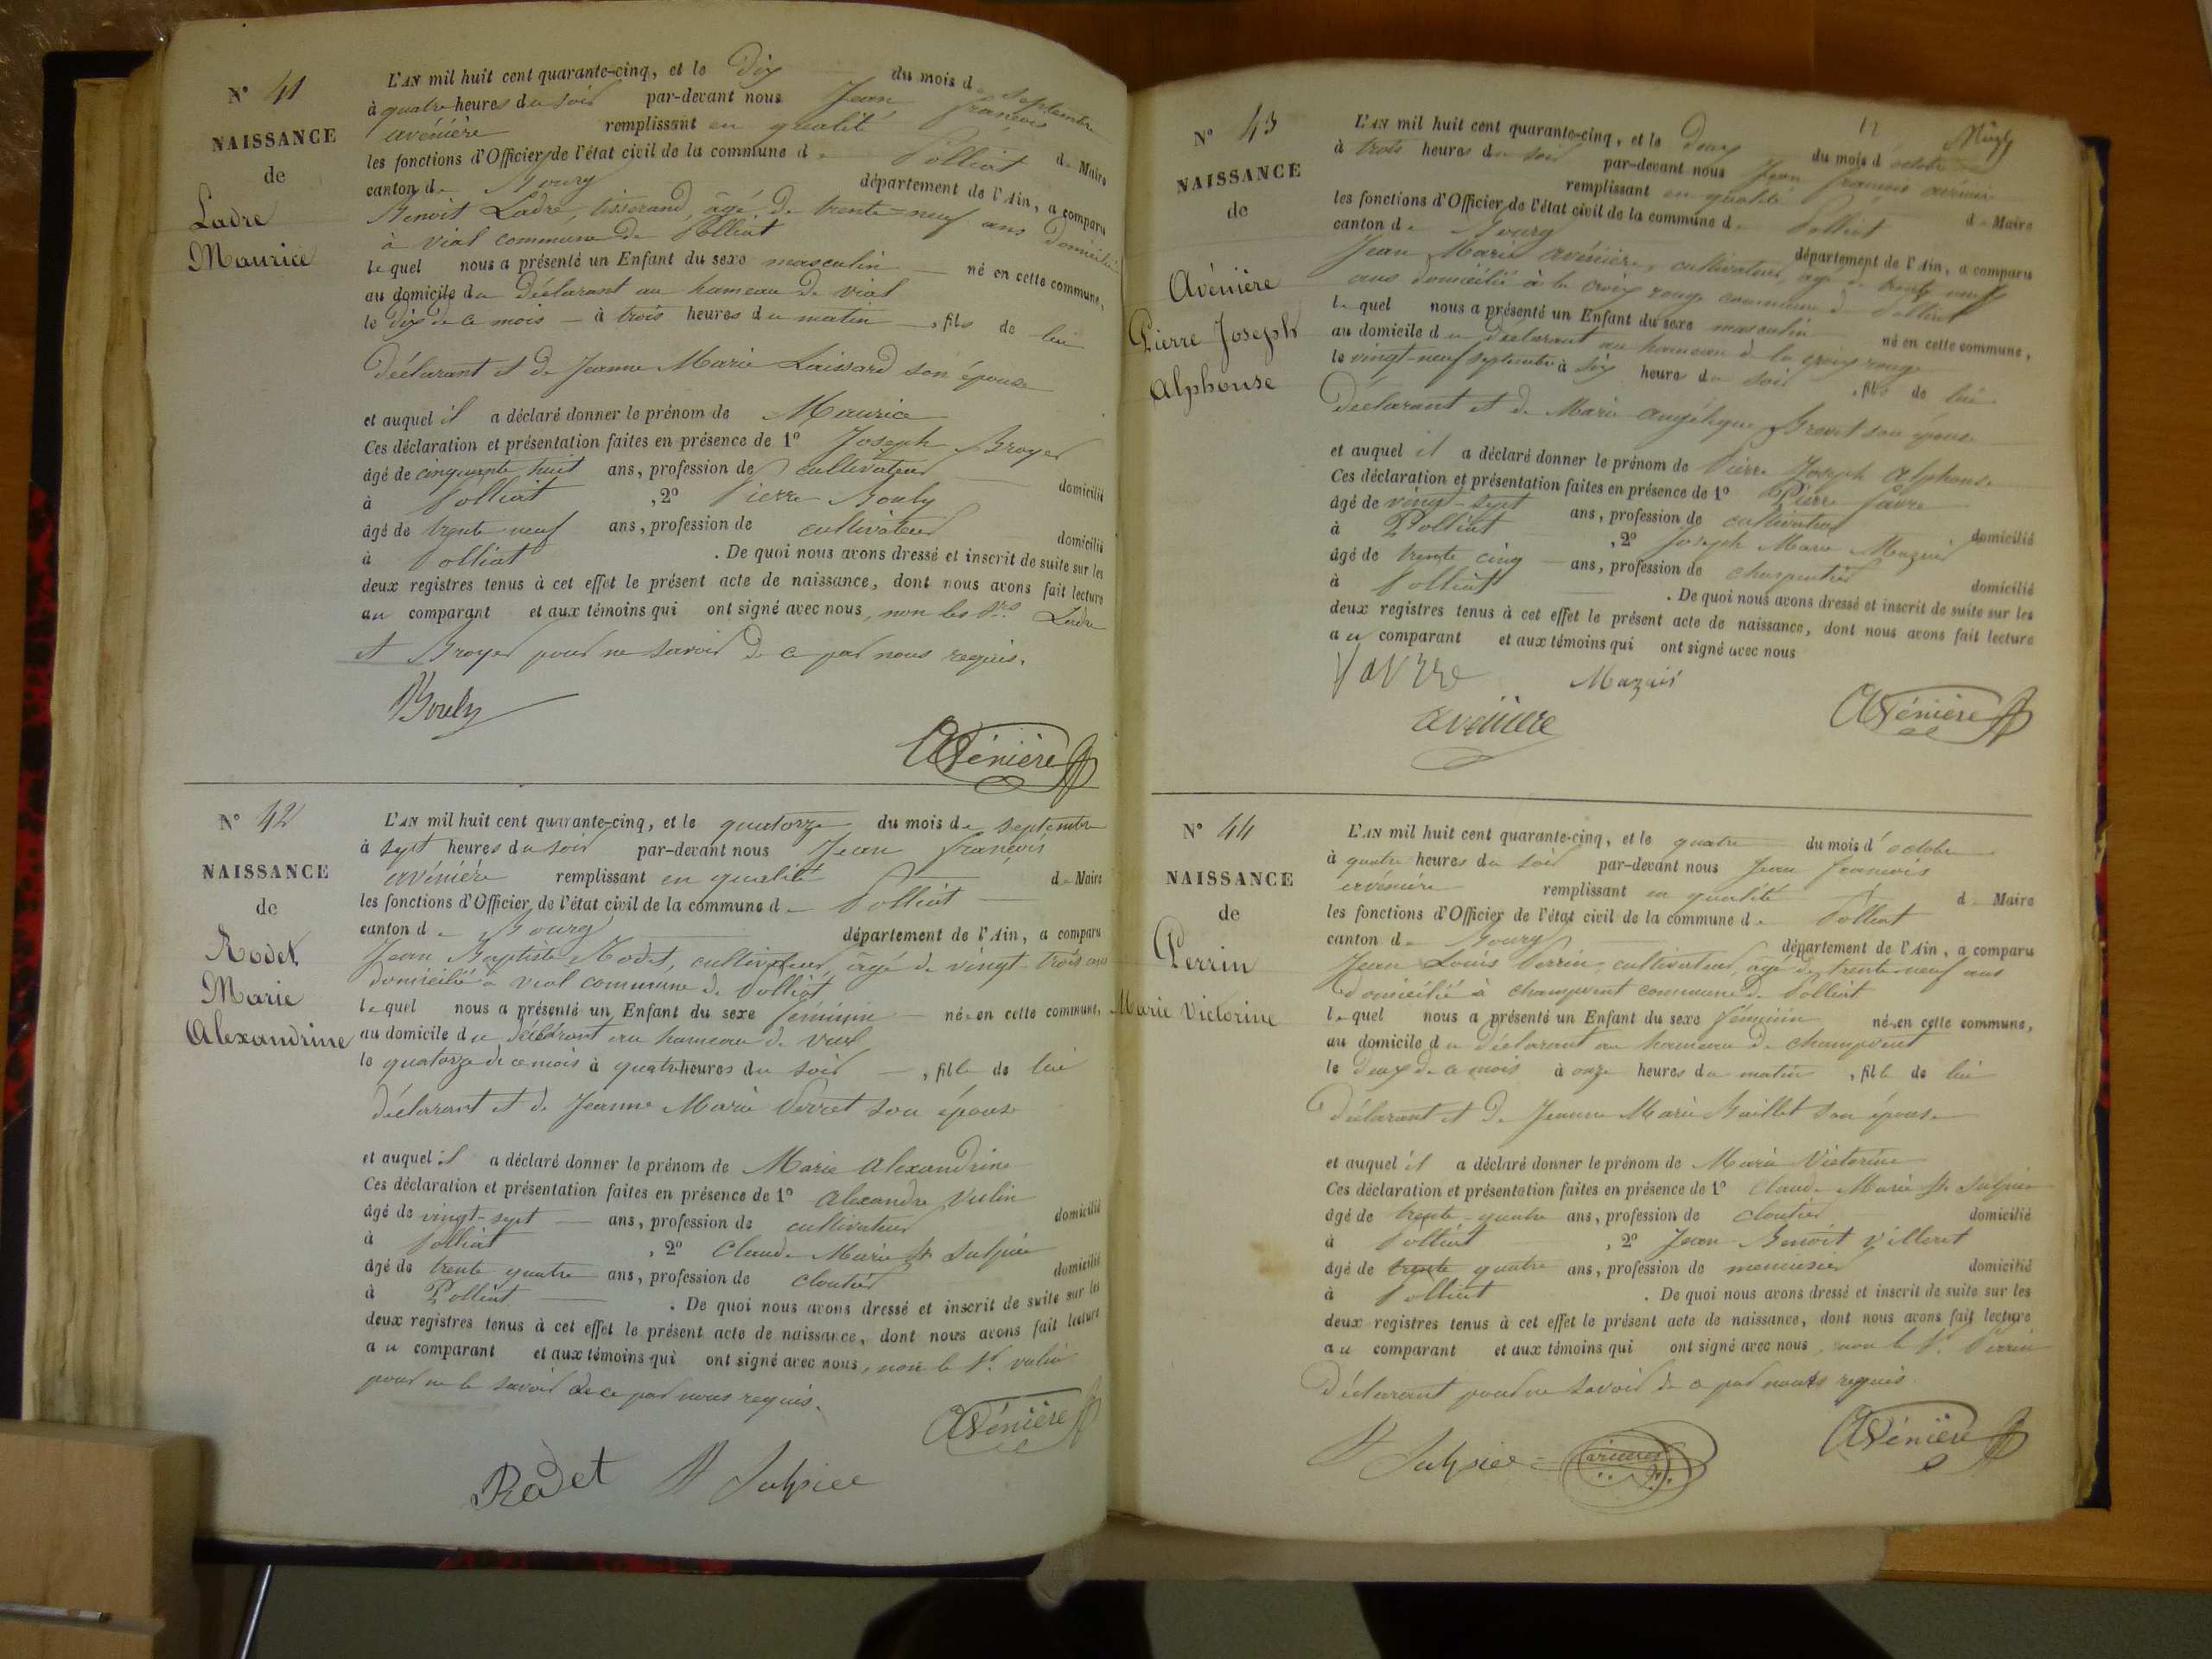 N° 41
NAISSANCE
de
Ladre
Maurice
L'AN mil huit cent quarante-cinq, et le dix du mois de septembre
à quatre heures du soir par-devant nous Jean françois
avénière remplissant en qualité de Maire
les fonctions d'Officier de l'état civil de la commune de Polliat
canton de Bourg département de l'Ain, a comparu
Benoit Ladre, tisserand, âgé de trente-neuf ans domicilié
à vial commune de Polliat
lequel nous a présenté un Enfant du sexe masculin né en cette commune,
au domicile du déclarant au hameau de vial
le dix de ce mois à trois heures du matin, fils de lui
déclarant et de Jeanne Marie Laissard son épouse
et auquel il a déclaré donner le prénom de Maurice
Ces déclaration et présentation faites en présence de 1° Joseph Broyer
âgé de cinquante huit ans, profession de cultivateur domicilié
à Polliat, 2° Pierre Bouly
âgé de trente neuf ans, profession de cultivateur domicilié
à Polliat. De quoi nous avons dressé et inscrit de suite sur les
deux registres tenus à cet effet le présent acte de naissance, dont nous avons fait lecture
au comparant et aux témoins qui ont signé avec nous, non les Srs Ladre
et Broyer pour ne savoir de ce par nous requis.
Bouly
Avénière
N° 42
NAISSANCE
de
Rodet
Marie
Alexandrine
L'AN mil huit cent quarante-cinq, et le quatorze du mois de septembre
à sept heures du soir par-devant nous Jean françois
avénière remplissant en qualité de Maire
les fonctions d'Officier de l'état civil de la commune de Polliat
canton de Bourg département de l'Ain, a comparu
Jean Baptiste Rodet, cultivateur, âgé de vingt-trois ans
domicilié à vial commune de Polliat
lequel nous a présenté un Enfant du sexe féminin née en cette commune,
au domicile du déclarant au hameau de vial
le quatorze de ce mois à quatre heures du soir, fille de lui
déclarant et de Jeanne Marie Verret son épouse
et auquel il a déclaré donner le prénom de Marie Alexandrine
Ces déclaration et présentation faites en présence de 1° Alexandre Vulin
âgé de vingt-sept ans, profession de cultivateur domicilié
à Polliat, 2° Claude Marie St Sulpice
âgé de trente quatre ans, profession de cloutier domicilié
à Polliat. De quoi nous avons dressé et inscrit de suite sur les
deux registres tenus à cet effet le présent acte de naissance, dont nous avons fait lecture
au comparant et aux témoins qui ont signé avec nous, non le Sr. vulin
pour ne le savoir de ce par nous requis.
Avénière
Rodet St Sulpice
12
N° 43
NAISSANCE
de
Avénière
Pierre Joseph
Alphonse
L'AN mil huit cent quarante-cinq, et le deux du mois d'octobre
à trois heures du soir par-devant nous Jean françois avénière
remplissant en qualité de Maire
les fonctions d'Officier de l'état civil de la commune de Polliat
canton de Bourg département de l'Ain, a comparu
Jean Marie Avénière, cultivateur, âgé de trente neuf
ans domicilié à la croix rouge commune de Polliat
lequel nous a présenté un Enfant du sexe masculin né en cette commune,
au domicile du déclarant au hameau de la croix rouge
le vingt-neuf septembre à six heures du soir, fils de lui
déclarant et de Marie Angélique Brevet son épouse
et auquel il a déclaré donner le prénom de Pierre Joseph Alphonse
Ces déclaration et présentation faites en présence de 1° Pierre favre
âgé de vingt-sept ans, profession de cultivateur domicilié
à Polliat, 2° Joseph Marie Mazuir
âgé de trente cinq ans, profession de charpentier domicilié
à Polliat. De quoi nous avons dressé et inscrit de suite sur les
deux registres tenus à cet effet le présent acte de naissance, dont nous avons fait lecture
au comparant et aux témoins qui ont signé avec nous
favre Mazuir
avénière
Avénière
N° 44
NAISSANCE
de
Perrin
Marie Victorine
L'AN mil huit cent quarante-cinq, et le quatre du mois d'octobre
à quatre heures du soir par-devant nous Jean françois
avénière remplissant en qualité de Maire
les fonctions d'Officier de l'état civil de la commune de Polliat
canton de Bourg département de l'Ain, a comparu
Jean Louis Perrin, cultivateur, âgé de trente-neuf ans
domicilié à champvent commune de Polliat
lequel nous a présenté un Enfant du sexe féminin née en cette commune,
au domicile du déclarant au hameau de champvent
le deux de ce mois à onze heures du matin, fille de lui
déclarant et de Jeanne Marie Baillet son épouse
et auquel il a déclaré donner le prénom de Marie Victorine
Ces déclaration et présentation faites en présence de 1° Claude Marie St Sulpice
âgé de trente-quatre ans, profession de cloutier domicilié
à Polliat, 2° Jean Benoit Villeret
âgé de trente quatre ans, profession de menuisier domicilié
à Polliat. De quoi nous avons dressé et inscrit de suite sur les
deux registres tenus à cet effet le présent acte de naissance, dont nous avons fait lecture
au comparant et aux témoins qui ont signé avec nous, non le Sr. Perrin
déclarant pour ne savoir de ce par nous requis.
St Sulpice
Avénière